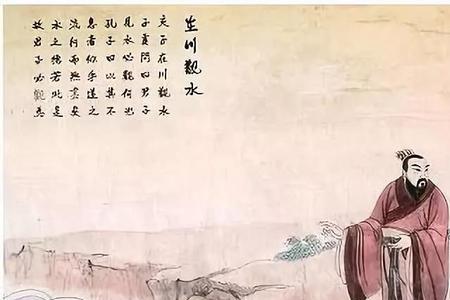 在川觀水
夫子在川觀水
子貢问曰君子
見水必觀何也
孔子曰以其不
息者似乎道之
流行而無盡矣
水之德若此是
故君子必觀焉